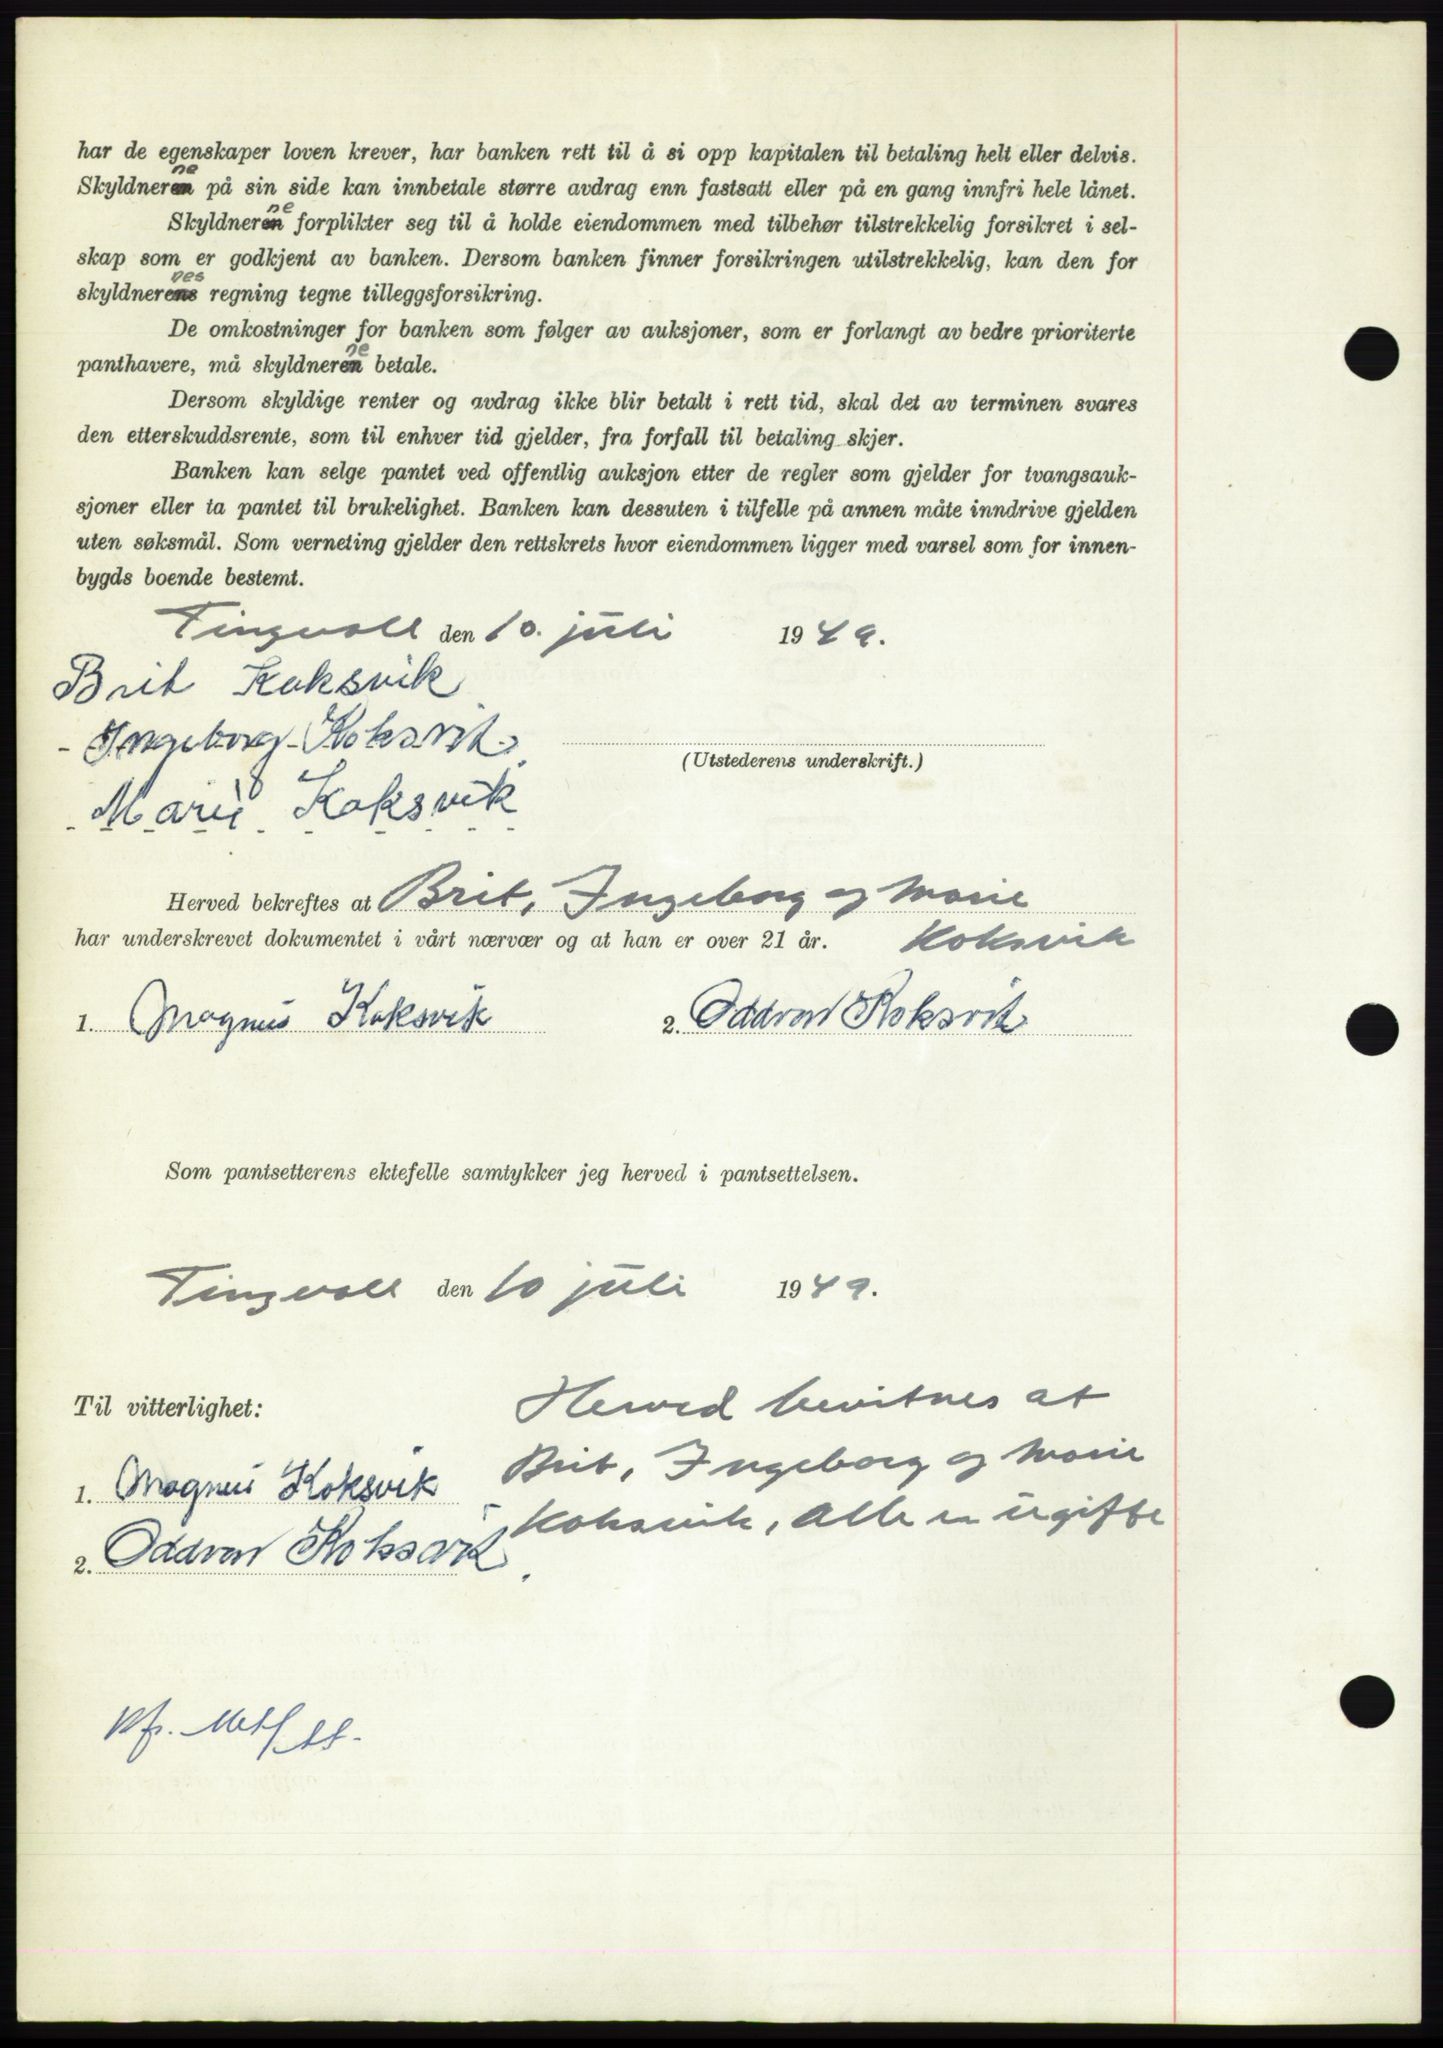 har de egenskaper loven krever, har banken rett til å si opp kapitalen til betaling helt eller delvis.
Skyldnerne på sin side kan innbetale større avdrag enn fastsatt eller på en gang innfri hele lånet.
Skyldnerne forplikter seg til å holde eiendommen med tilbehør tilstrekkelig forsikret i sel-
skap som er godkjent av banken. Dersom banken finner forsikringen utilstrekkelig, kan den for
skyldnernes regning tegne tilleggsforsikring.
De omkostninger for banken som følger av auksjoner, som er forlangt av bedre prioriterte
panthavere, må skyldnerne betale.
Dersom skyldige renter og avdrag ikke blir betalt i rett tid, skal det av terminen svares
den etterskuddsrente, som til enhver tid gjelder, fra forfall til betaling skjer.
Banken kan selge pantet ved offentlig auksjon etter de regler som gjelder for tvangsauk-
sjoner eller ta pantet til brukelighet. Banken kan dessuten i tilfelle på annen måte inndrive gjelden
uten søksmål. Som verneting gjelder den rettskrets hvor eiendommen ligger med varsel som for innen-
bygds boende bestemt.
Tingvoll den 10. juli 1949.
Brit Koksvik
Ingeborg Koksvik.
(Utstederens underskrift.)
Marie Koksvik
Herved bekreftes at Brit, Ingeborg og Marie
har underskrevet dokumentet i vårt nærvær og at han er over 21 år. Koksvik
1. Magnus Koksvik 2. Oddvar Koksvik
Som pantsetterens ektefelle samtykker jeg herved i pantsettelsen.
Tingvoll den 10 juli 1949.
Til vitterlighet:
Herved bevitnes at
Brit, Ingeborg og Marie
1. Magnus Koksvik
Koksvik, alle er ugifte
2. Oddvar Koksvik.